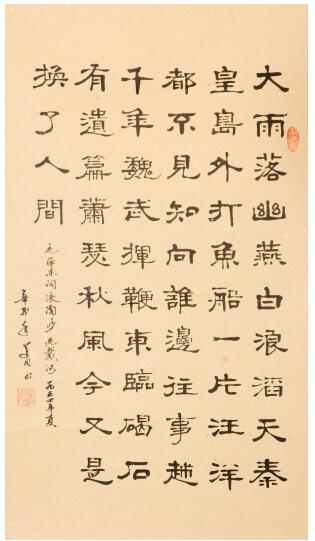 大雨落幽燕白浪滔天秦
皇島外打魚船一片汪洋
都不見知向誰邊往事越
千年魏武揮鞭東臨碣石
有遺篇蕭瑟秋風今又是
換了人間
毛澤東詞浪淘沙北戴河一九五四年夏